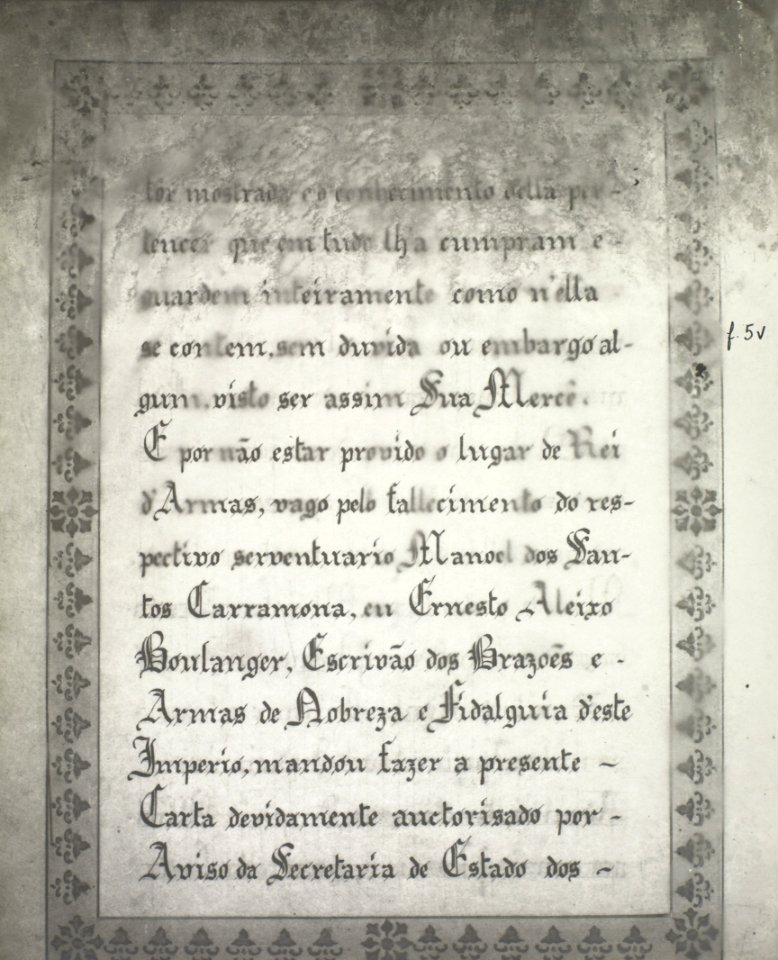 fôr mostrada e o conhecimento della per-
tencer que em tudo lh'a cumpram e-
guardem inteiramente como n'ella
se contem, sem duvida ou embargo al-
gum, visto ser assim Sua Mercê.
E por não estar provido o lugar de Rei
d'Armas, vago pelo fallecimento do res-
pectivo serventuario Manoel dos San-
tos Carramona, eu Ernesto Aleixo
Boulanger, Escrivão dos Brazoẽs e -
Armas de Nobreza e Fidalguia d'este
Imperio, mandou fazer a presente ~
Carta devidamente auctorisado por-
Aviso da Secretaria de Estado dos ~
f. 5v